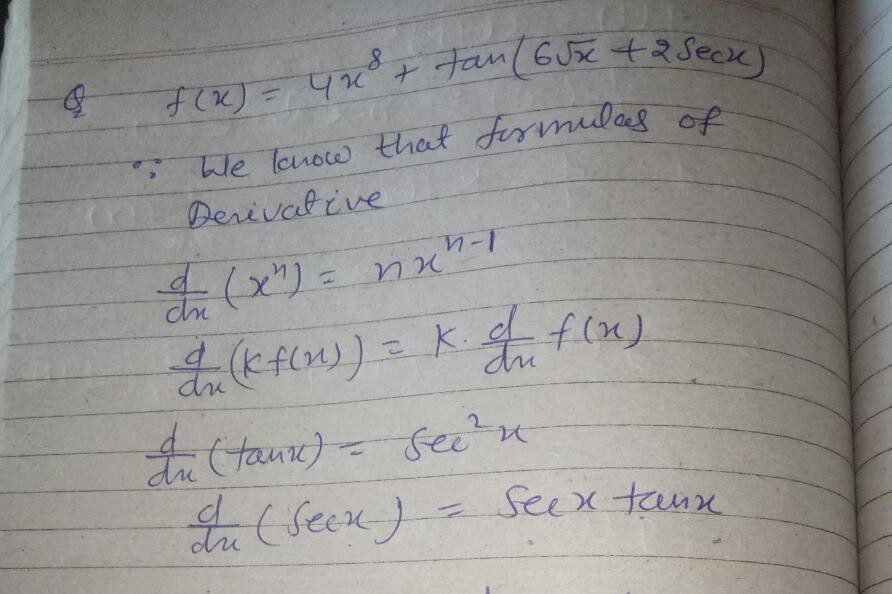 Q f(x) = 4x⁸ + tan(6√x + 2 secx)
∵ We know that formulas of
Derivative
d/dx (xⁿ) = nxⁿ⁻¹
d/dx (k f(x)) = K. d/dx f(x)
d/dx (tanx) = sec²x
d/dx (secx) = secx tanx